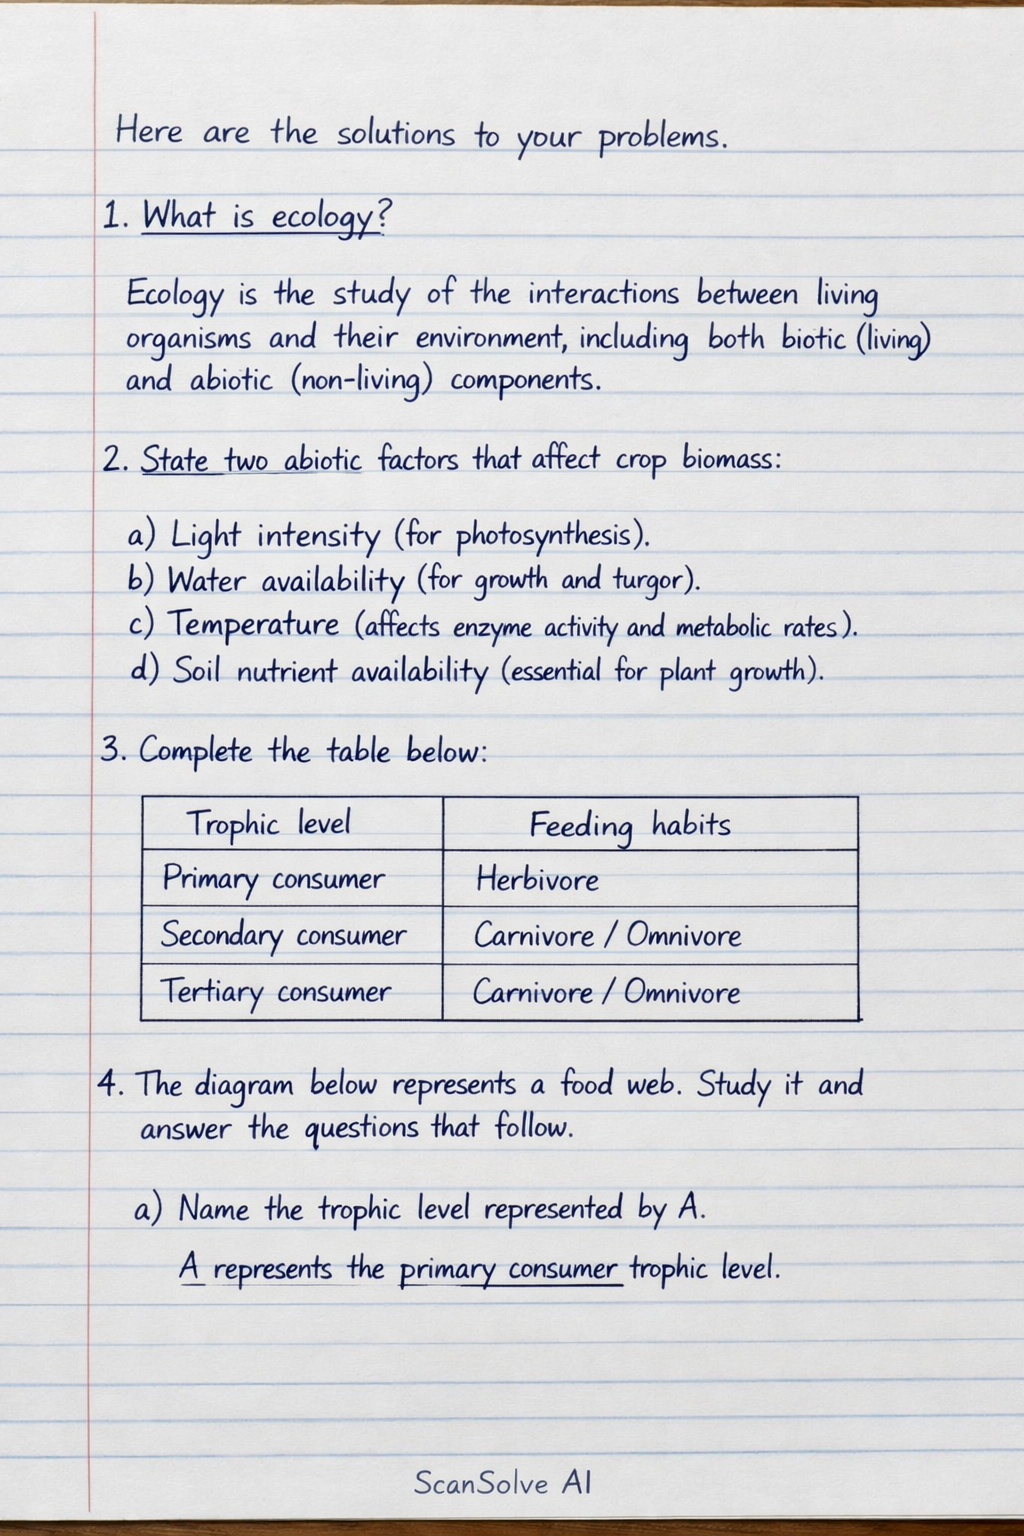 Here are the solutions to your problems.
1. What is ecology?
Ecology is the study of the interactions between living
organisms and their environment, including both biotic (living)
and abiotic (non-living) components.
2. State two abiotic factors that affect crop biomass:
a) Light intensity (for photosynthesis).
b) Water availability (for growth and turgor).
c) Temperature (affects enzyme activity and metabolic rates).
d) Soil nutrient availability (essential for plant growth).
3. Complete the table below:
Trophic level Feeding habits
Primary consumer Herbivore
Secondary consumer Carnivore / Omnivore
Tertiary consumer Carnivore / Omnivore
4. The diagram below represents a food web. Study it and
answer the questions that follow.
a) Name the trophic level represented by A.
A represents the primary consumer trophic level.
ScanSolve AI